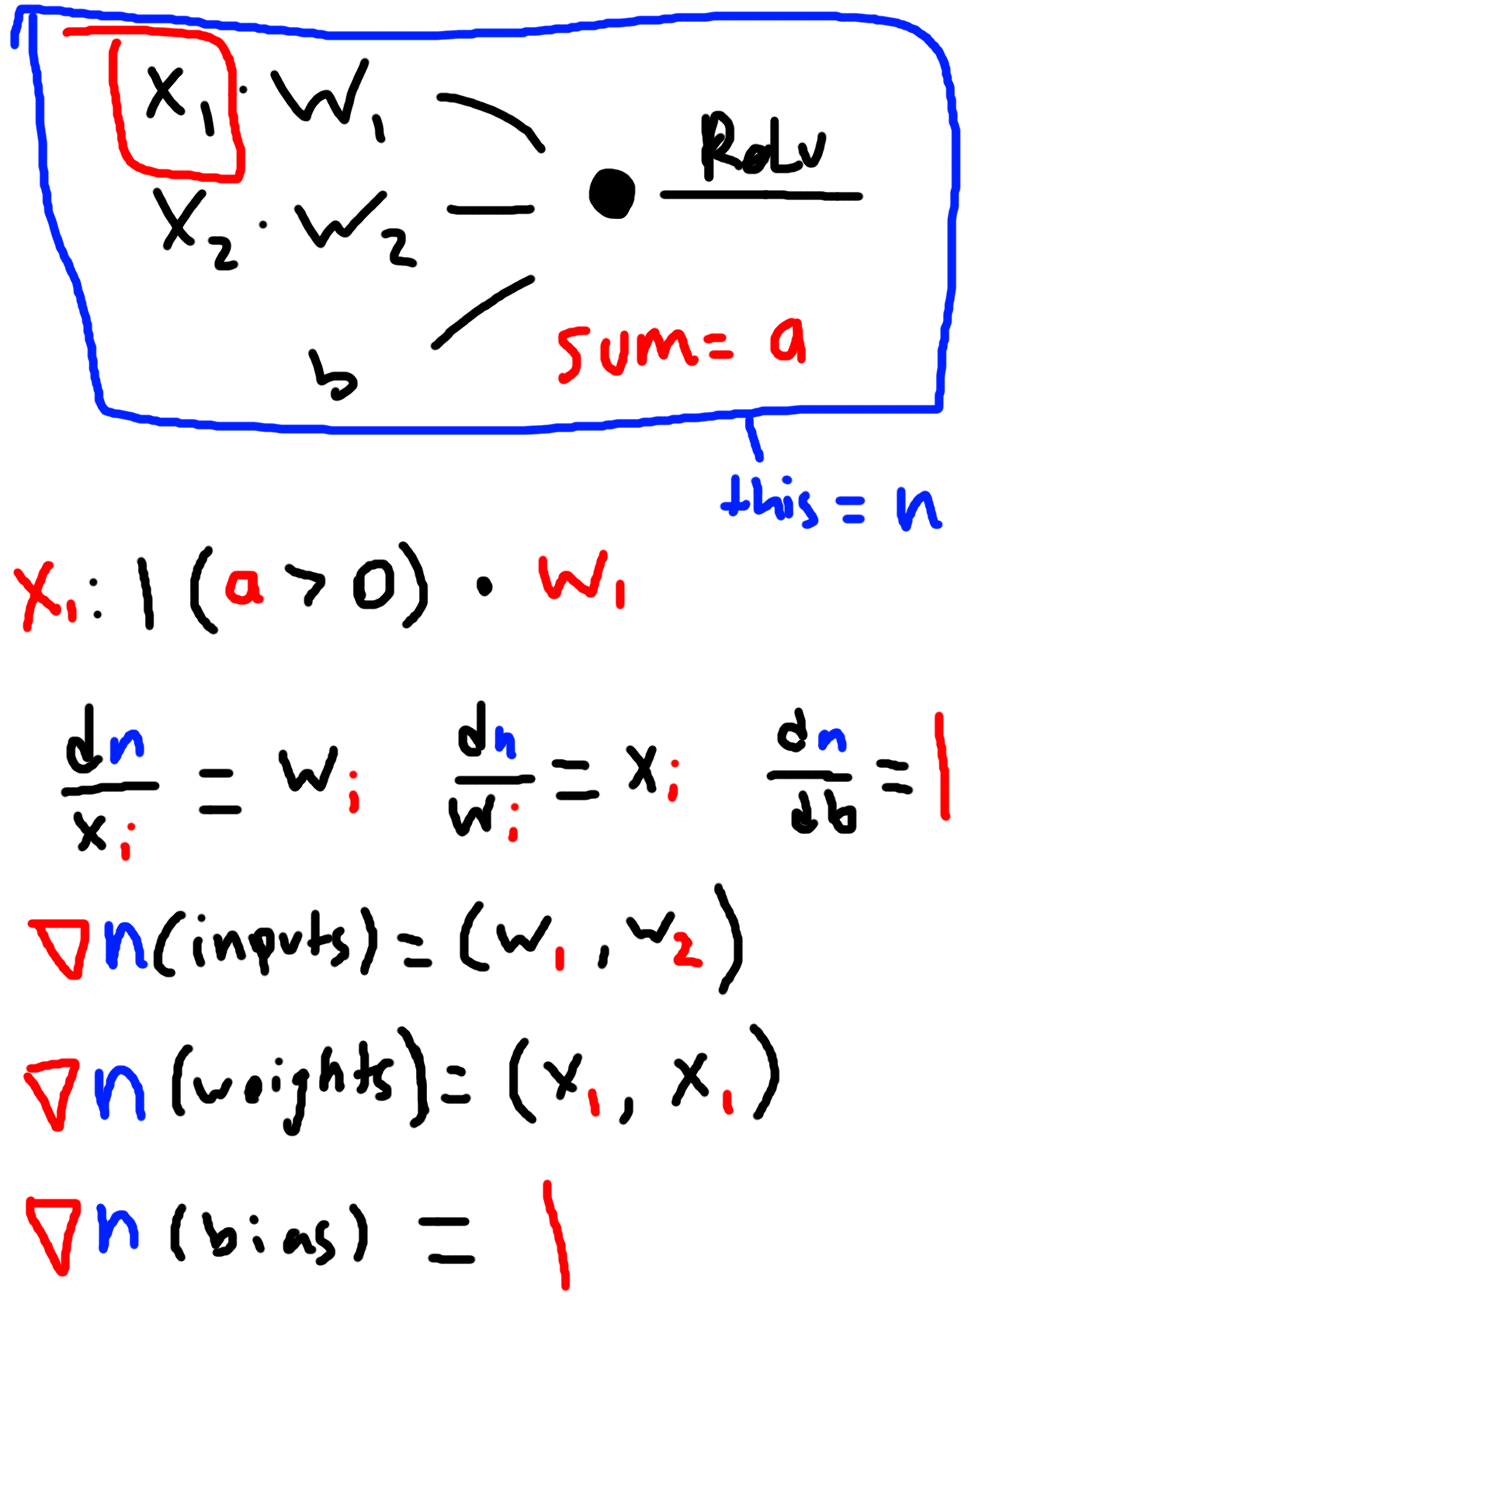 x₁ · w₁
ReLU
x₂ · w₂
b
sum = a
this = n
x₁: 1 (a > 0) · w₁
dn/xᵢ = wᵢ dn/wᵢ = xᵢ dn/db = 1
∇n(inputs) = (w₁, w₂)
∇n(weights) = (x₁, x₁)
∇n(bias) = 1